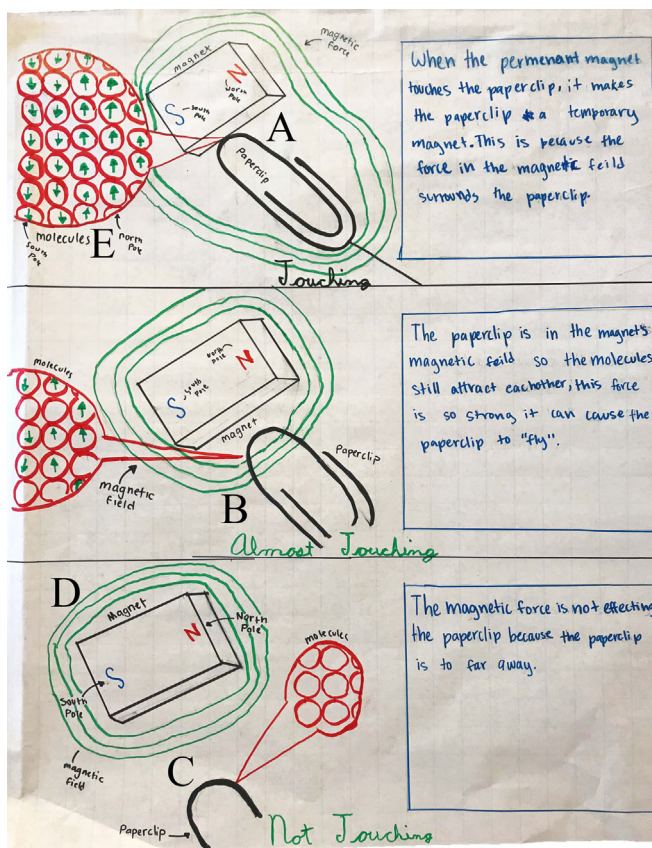 magnetic
force
Magnet
N
North
Pole
S
South
Pole
A
Paperclip
molecules
E
South
Pole
North
Pole
Touching
When the permenant magnet
touches the paperclip, it makes
the paperclip a temporary
magnet. This is because the
force in the magnetic feild
surrounds the paperclip.
molecules
North
Pole
N
S
South
Pole
magnet
Paperclip
magnetic
field
B
Almost Touching
The paperclip is in the magnets
magnetic feild so the molecules
still attract eachother, this force
is so strong it can cause the
paperclip to "fly".
D
Magnet
North
Pole
N
S
South
Pole
magnetic
field
molecules
C
Paperclip
Not Touching
The magnetic force is not effecting
the paperclip because the paperclip
is to far away.